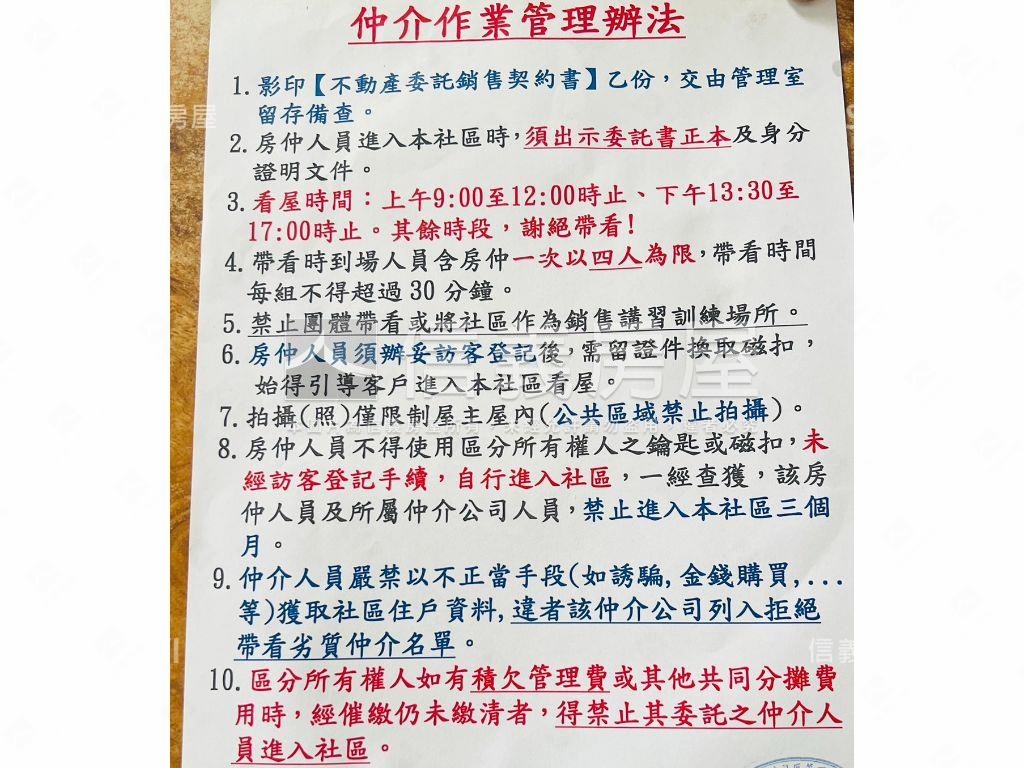 仲介作業管理辦法
1. 影印【不動產委託銷售契約書】乙份，交由管理室
留存備查。
2. 房仲人員進入本社區時，須出示委託書正本及身分
證明文件。
3. 看屋時間：上午9:00至12:00時止、下午13:30至
17:00時止。其餘時段，謝絕帶看！
4. 帶看時到場人員含房仲一次以四人為限，帶看時間
每組不得超過 30 分鐘。
5. 禁止團體帶看或將社區作為銷售講習訓練場所。
6. 房仲人員須辦妥訪客登記後，需留證件換取磁扣，
始得引導客戶進入本社區看屋。
7. 拍攝(照)僅限制屋主屋內(公共區域禁止拍攝)。
8. 房仲人員不得使用區分所有權人之鑰匙或磁扣，未
經訪客登記手續，自行進入社區，一經查獲，該房
仲人員及所屬仲介公司人員，禁止進入本社區三個
月。
9. 仲介人員嚴禁以不正當手段(如誘騙,金錢購買,...
等)獲取社區住戶資料,違者該仲介公司列入拒絕
帶看劣質仲介名單。
10. 區分所有權人如有積欠管理費或其他共同分攤費
用時，經催繳仍未繳清者，得禁止其委託之仲介人
員進入社區。
信義房屋
房屋
信義